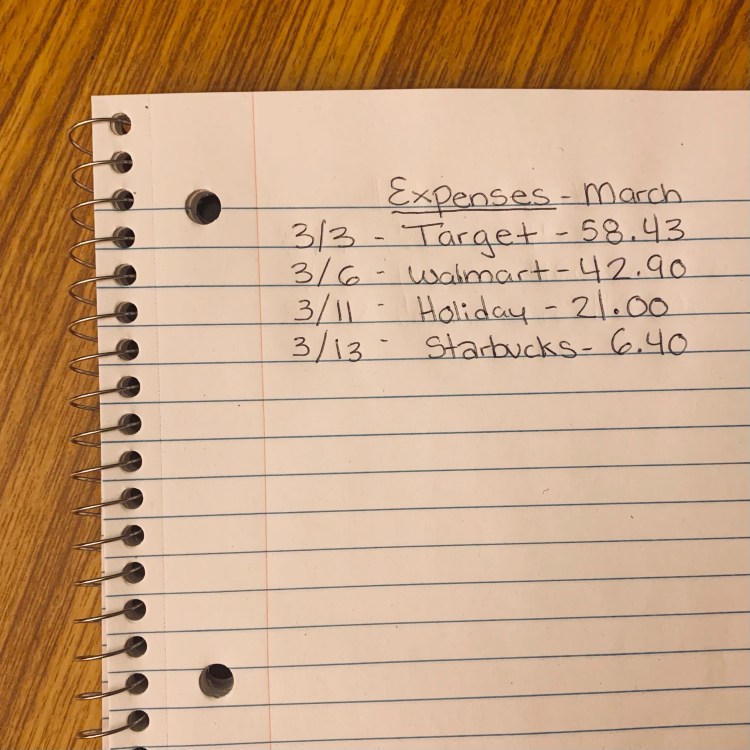 Expenses - March
3/3 - Target - 58.43
3/6 - Walmart - 42.90
3/11 - Holiday - 21.00
3/13 - Starbucks - 6.40